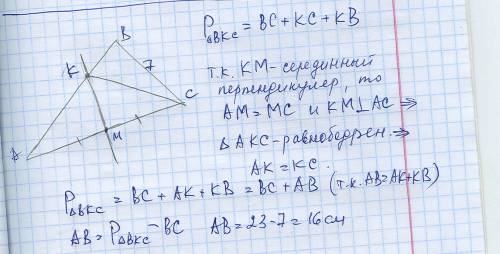 P△BKC = BC + KC + KB
B
K
7
C
A
M
т.к. KM - серединный
перпендикуляр, то
AM = MC и KM⊥AC ⇒
△AKC - равнобедрен. ⇒
AK = KC.
P△BKC = BC + AK + KB = BC + AB (т.к. AB=AK+KB)
AB = P△BKC - BC AB = 23 - 7 = 16 см